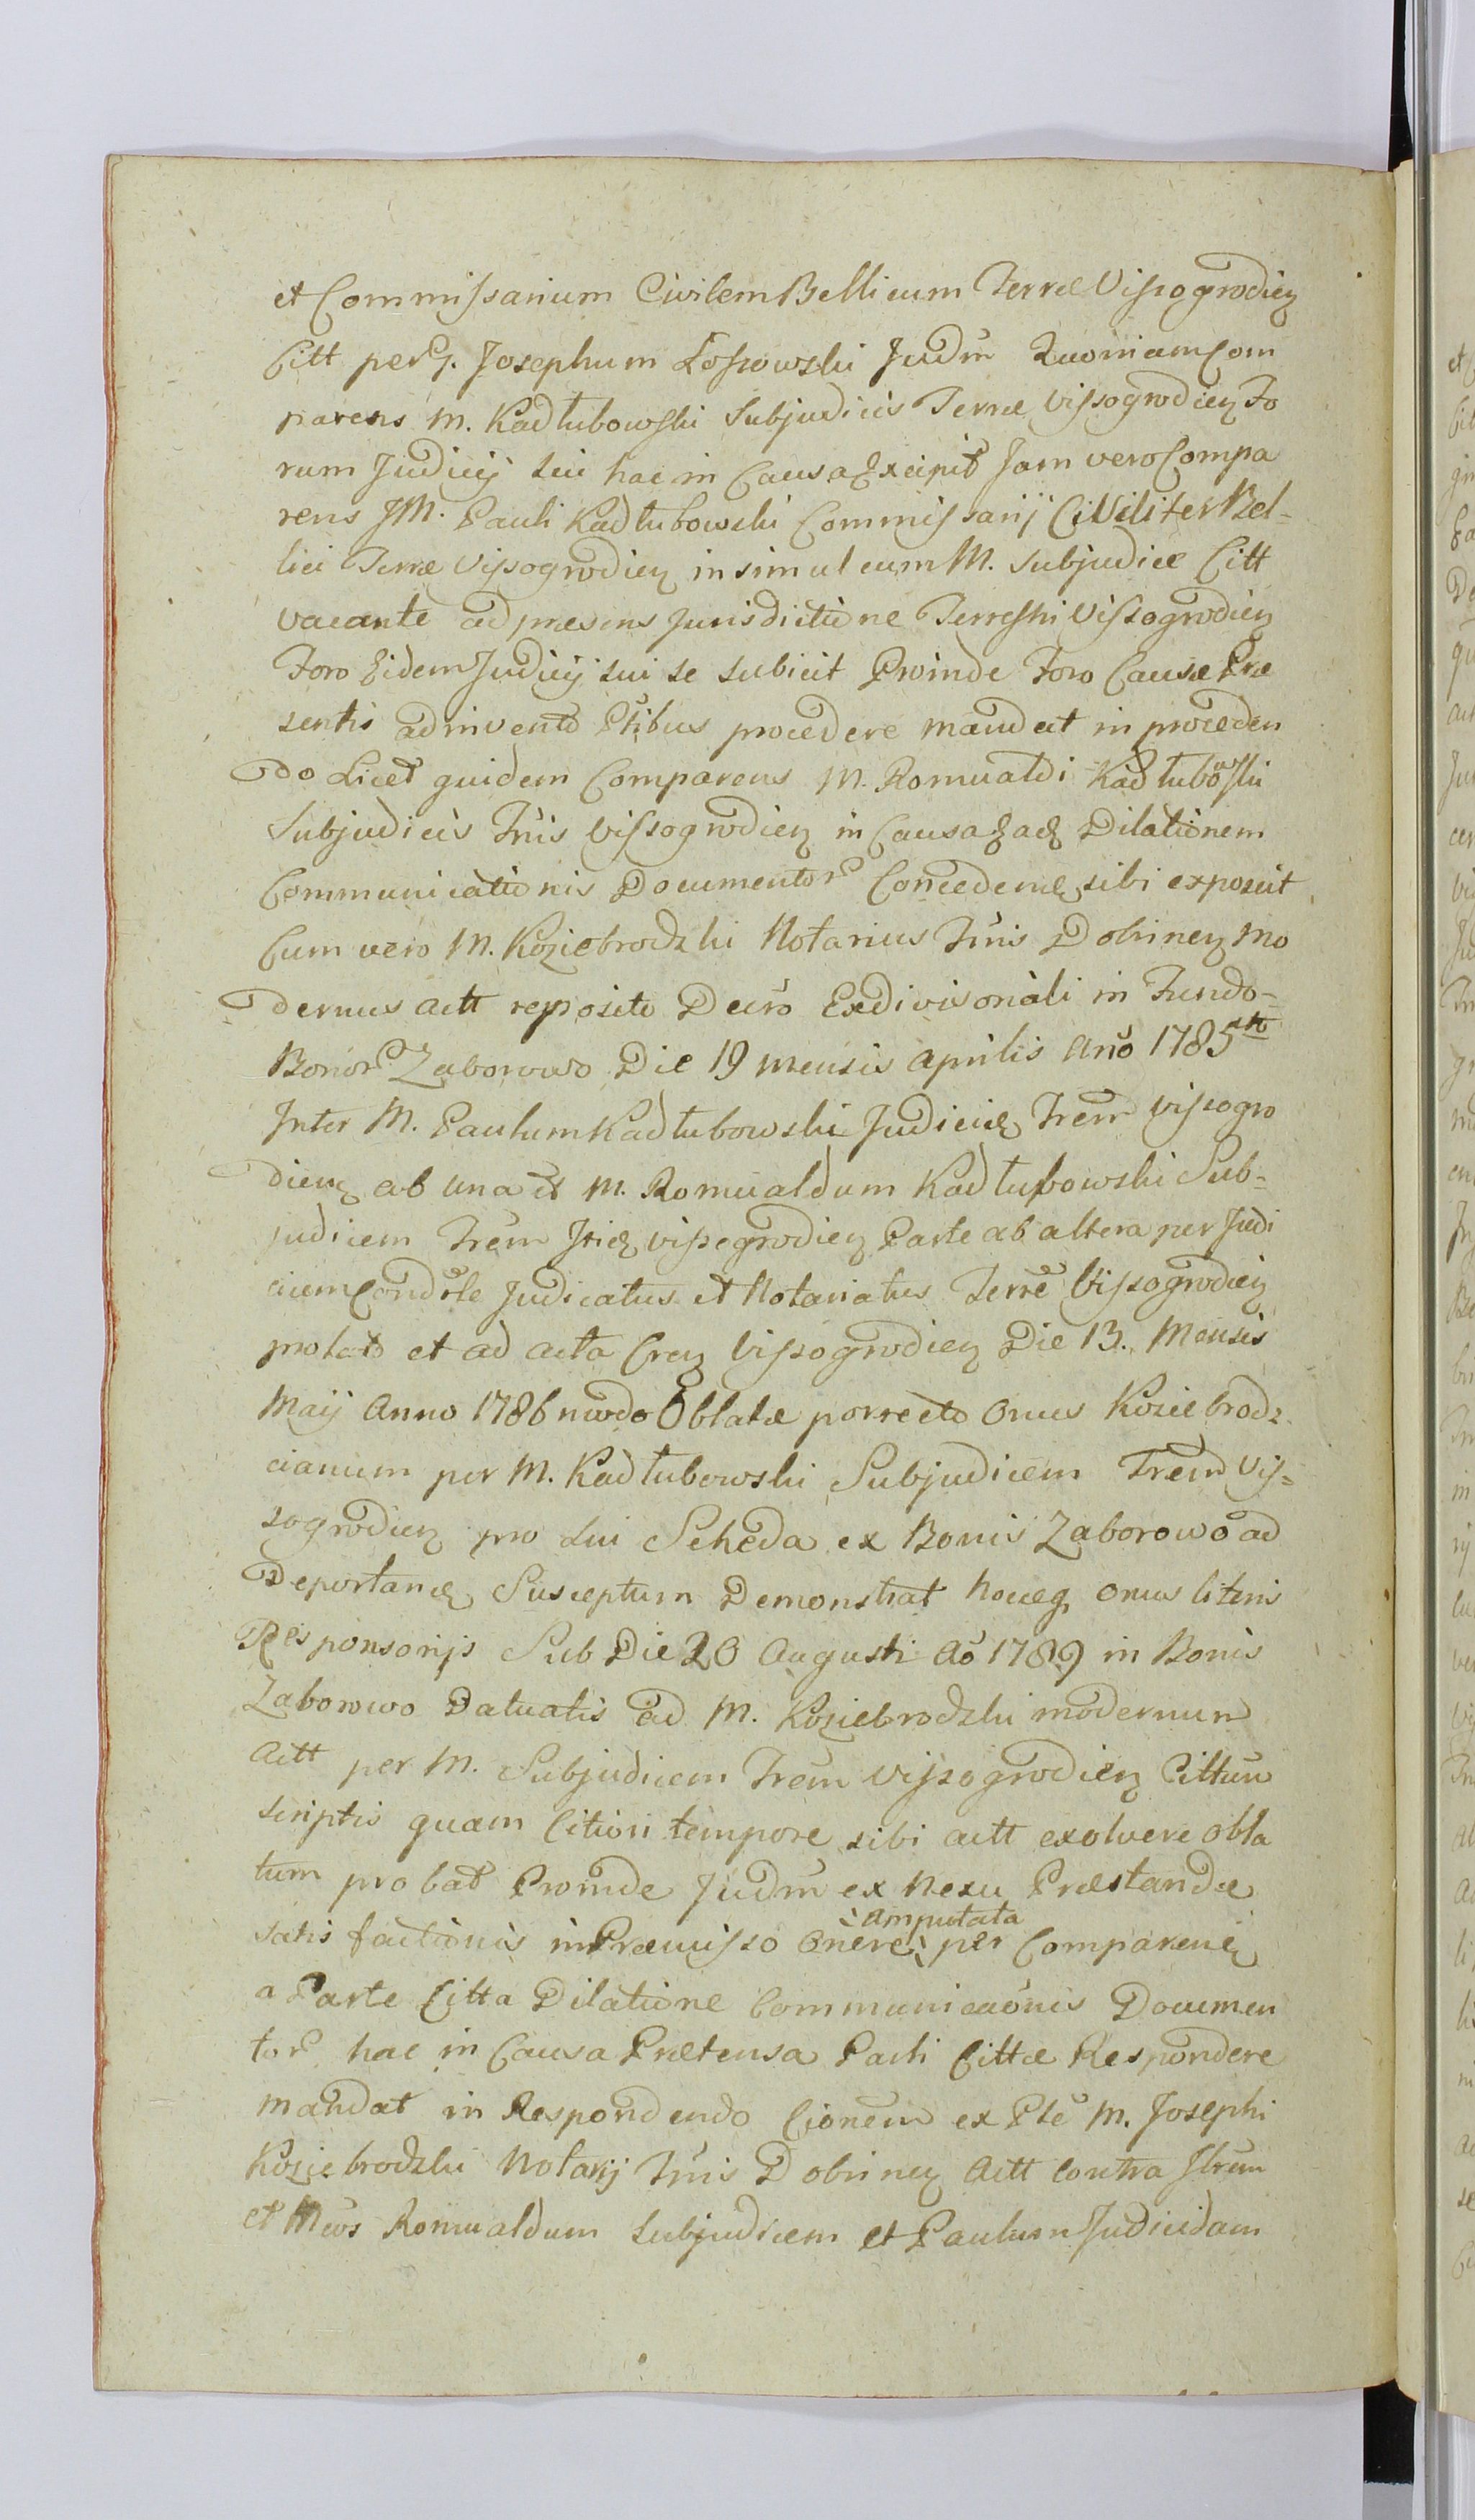 et Commissarium Civilem Bellicum Terræ Vissogrodien
Citt per G. Josephum Lossowski Judm Quoniam Com
parens M. Kadłubowski Subjudicis Terræ Vissogrodien Fo
rum Judicij sui hac in Causa Excipit Jam vero Compa
rens JM. Pauli Kadłubowski Commissarij Civiliter Bel-
lici Terræ Vissogrodien insimul cum M. Subjudice Citt
vacante ad præsens Jurisdictione Terrestri Vissogrodien
Foro Eidem Judicij sui se subicit Proinde Foro Causæ Præ
sentis adinvento Ptibus procedere mandat in proceden
do Licet quidem Comparens M. Romualdi Kadłubowski
Subjudicis Tris Vissogrodien in Causa Eadq Dilationem
Communicationis Documentor Concedend sibi exposcit
Cum vero M. Koziebrodzki Notarius Tris Dobrinen Mo
dernus Actt reposito Decro Exdivisonali in Fundo-
Bonor Zaborowo Die 19 mensis Aprilis Ano 1785to
Inter M. Paulum Kadłubowski Judicid Trem Vissogro
dien ab una et M. Romualdum Kadłubowski Sub-
judicem Trem Itid Vissegrodien Parte ab altera per Judi
cium Condrle Judicatus et Notariatus Terre Vissogrodien
prolato et ad acta Cren Vissogrodien Die 13. Mensis
Maij Anno 1786 modo Oblatæ porrecto Onus Koziebrodz
cianum per M. Kadłubowski Subjudicem Trem Vis-
sogrodien pro sui Scheda ex Bonis Zaborowo ad
Deportand Susceptum Demonstrat hocq onus literis
Responsorijs Sub Die 20 Augusti Ao 1789 in Bonis
Zaborowo Datuatis ad M. Koziebrodzki modernum
Actt per M. Subjudicem Trem Vissogrodien Cittum
scriptis quam Citiori tempore sibi actt exolvere obla
tum probat Proinde Judm ex Nexu Præstandæ
satis factionis in Præmisso Onere amputata per Comparen
a Parte Citta Dilatione Communicaonis Documen
tor hac in Causa Prætensa Parti Cittæ Respondere
mandat in Respondendo Cionem ex Pte M. Josephi
Koziebrodzki Notarij Tris Dobrinen Actt contra Itrem
et Mcos Romualdum Subjudicem et Paulum Judicidam